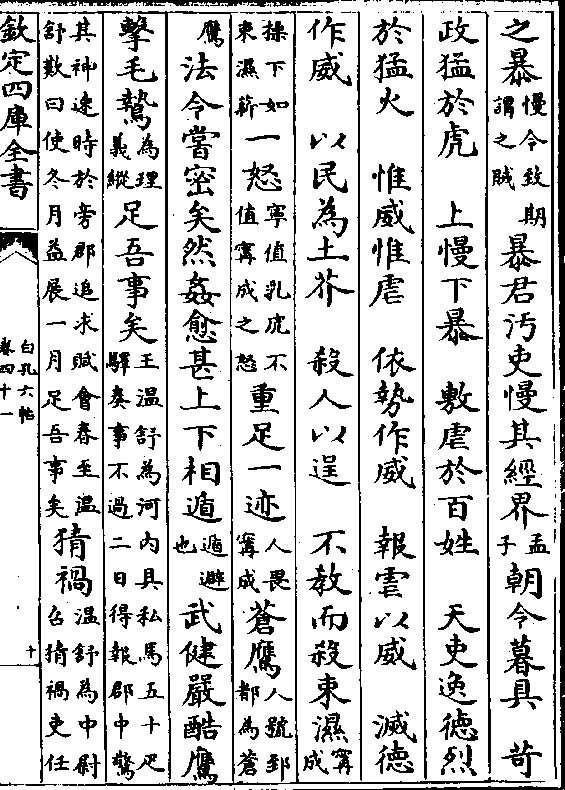 之暴慢令致期謂之賊暴君汚吏慢其經界孟子朝令暮具　苛
政猛於虎　上慢下暴　敷虐於百姓　天吏逸德烈
於猛火　惟威惟虐　依勢作威　報虐以威　滅德
作威　以民為土芥　殺人以逞　不教而殺束濕寗成
操下如束濕薪一怒寧值乳虎不值寗成之怒重足一迹人畏寗成蒼鷹人號郅都為蒼
鷹法令嘗密矣然姦愈甚上下相遁遁避也武健嚴酷鷹
擊毛鷙為理義縱足吾事矣王溫舒為河內具私馬五十疋驛奏事不過二日得報郡中驚
其神速時於旁郡追求賊會春至溫舒歎曰使冬月益展一月足吾事矣猜禍溫舒為中尉召猜禍吏任
欽定四庫全書
白孔六帖
卷四十一
十